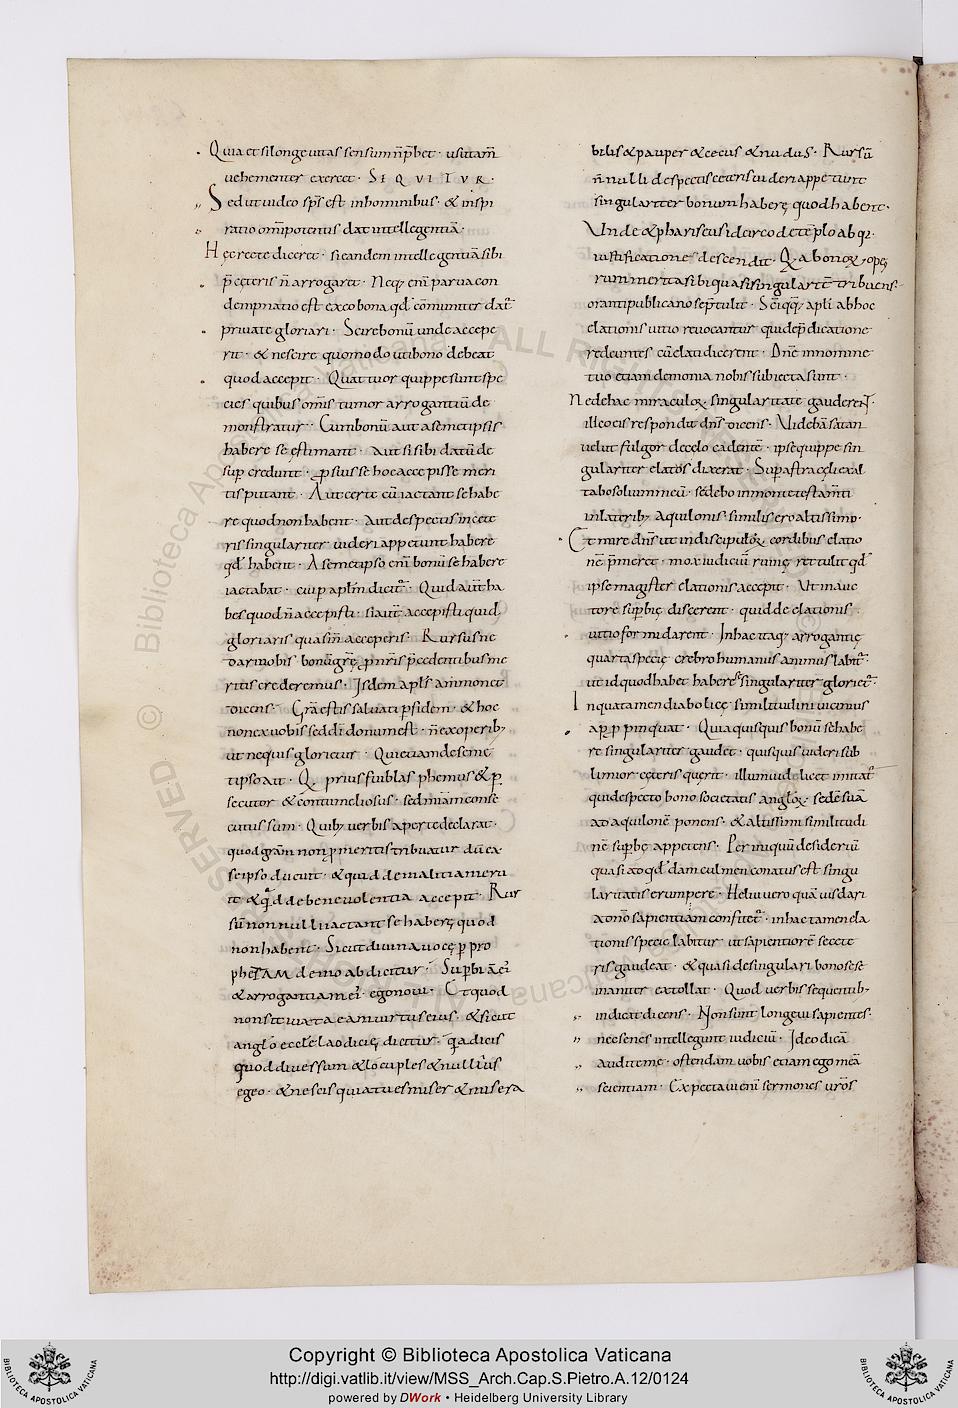 Quia et si longe vitas sensum n̄ p̄bet · usitam̄
vehementer exercet · SIQVITVR ·
Sed ut video sp̄s est in hominibus · & inspi
ratio om̄ipotentis dat intellegentiā ·
Hęc recte diceret · si eandem intellegentiā sibi
p̄ cęteris n̄ arrogaret · Neq; eni᷎ parva con
dempnatio est ea xo bona qd̄ cōmuniter dat᷑
private gloriari · Scire bonū unde accepe
rit · & nescire quomodo uti bono debeat
quod accepit · Quattuor quippe sunt spe
cies quibus om̄is tumor arrogantiū de
monstratur · Cum bonū aut a semetipsis
habere se ęstimant · Aut si sibi datū de
sup̄ credunt · ꝓ suis se hoc accepisse meri
tis putant · Aut certe cū iactant se habe
re quod non habent · Aut despectis incete
ris singulariter videri appetunt habere
qd̄ habent · A semetipso eni᷎ bonū se habere
iactabat · cui ꝑ aplm̄ dicit᷑ · Quid aut̄ ha
bes quod n̄ accepisti · si aut̄ accepisti quid
gloriaris quasi n̄ acceperis · Rursus ne
dari nobis bonū grę ꝓ nr̄is p̄cedentibus me
ritis crederemus · Isdem apls̄ ammonet
dicens · Gr̄a estis salvati ꝑ fidem · & hoc
non ex vobis sed dī donum est · n̄ ex operib;
ut ne quis glorietur · Qui etiam de seme
tipso ait · Q̄ prius fui blasphemus & ꝑ
secutor & contumeliosus · sed mi᷎am conse
cutus sum · Quib; verbis aperte declarat ·
quod gr̄am non ꝓ meritis tribuatur dū ex
se ipso ducuit · & quid de malitia meru
it & qd̄ de benevolentia accepit · Rur
sū nonnulli iactant se haberę quod
non habent · Sicut divina vocę ꝑ pro
phetam de moab dicitur · Superbiā ei᷎
& arrogantiam ei᷎ · ego novi · Et quod
non sit iuxta eam virtus eius · & sicut
anglo eccłe laodicię dicitur · q̄a dicis
quod dives sum & locuples & nullius
egeo · & nescis quia tu es miser & misera
bilis & pauper & cecus & nudus · Rursū
n̄nulli despectis ceteris videri appetunt
singulariter bonum haberę quod habent ·
Unde & phariseus idcirco de tēplo absq;
iustificatione descendit · Q̄a bonoꝝ opę
rum merita sibi quasi singularitē tribuens ·
oranti publicano se p̄tulit · Sc̄iqq; apl̄i ab hoc
elationis vitio revocantur qui de p̄dicatione
redeuntes cū elati dicerent · Dnē in nomine
tuo etiam demonia nobis subiecta sunt ·
Ne de hac miraculoꝝ singularitate gauderent᷎ ·
illico eis respondit dn̄s dicens · Videbā satan
velut fulgor de celo cadentē · ipse quippe sin
gulariter elatos dixerat · Sup̄ astra cęli exal
tabo solium meū · sedebo in monte testam̄ti
in laterib; Aquilonis · similis ero altissimo ·
Et mire dn̄s ut in discipuloꝝ cordibus elatio
nē p̄meret · mox iudiciū ruinę rettulit qd̄
ipse magister elationis accepit · Ut in auc
tore sup̄bię discerent · quid de elationis
vitio formidarent · In hac itaq; arrogantię
quarta specię crebro humanus animus labit᷑ ·
ut id quod habet habere se singulariter gloriet᷑ ·
In qua tamen diabolicę similitudini vicinius
apꝓpinquat · Quia quisquis bonū se habe
re singulariter gaudet · quisquis videri sub
limior cęteris querit · illum videlicet imitat᷑
qui despecto bono societatis angloꝝ · sedē suā
ad aquilonē ponens · & altissimi similitudi
nē sup̄bę appetens · Per iniquū desideriū
quasi ad qd̄dam culmen conatus est singu
laritatis erumpere · Heliu vero quāvis dari
a dn̄o sapientiam confitet᷑ · in hac tamen ela
tionis specie labitur ut sapientiorē se cete
ris gaudeat · & quasi de singulari bono sese
inaniter extollat · Quod verbis sequentib;
indicat dicens · Non sunt longevi sapientes ·
nec senes intellegunt iudiciū · Ideo dicā
audite me · ostendam vobis etiam ego meā
scientiam · Expectavi eni᷎ sermones vr̄os
Copyright © Biblioteca Apostolica Vaticana
http://digi.vatlib.it/view/MSS_Arch.Cap.S.Pietro.A.12/0124
powered by DWork • Heidelberg University Library